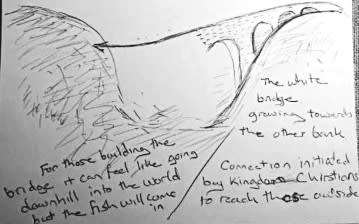 The white
bridge
growing towards
the other bank
For those building the
bridge it can feel like going
downhill into the world
but the fish will come
in
Connection initiated
by Kingdom Christians
to reach those outside